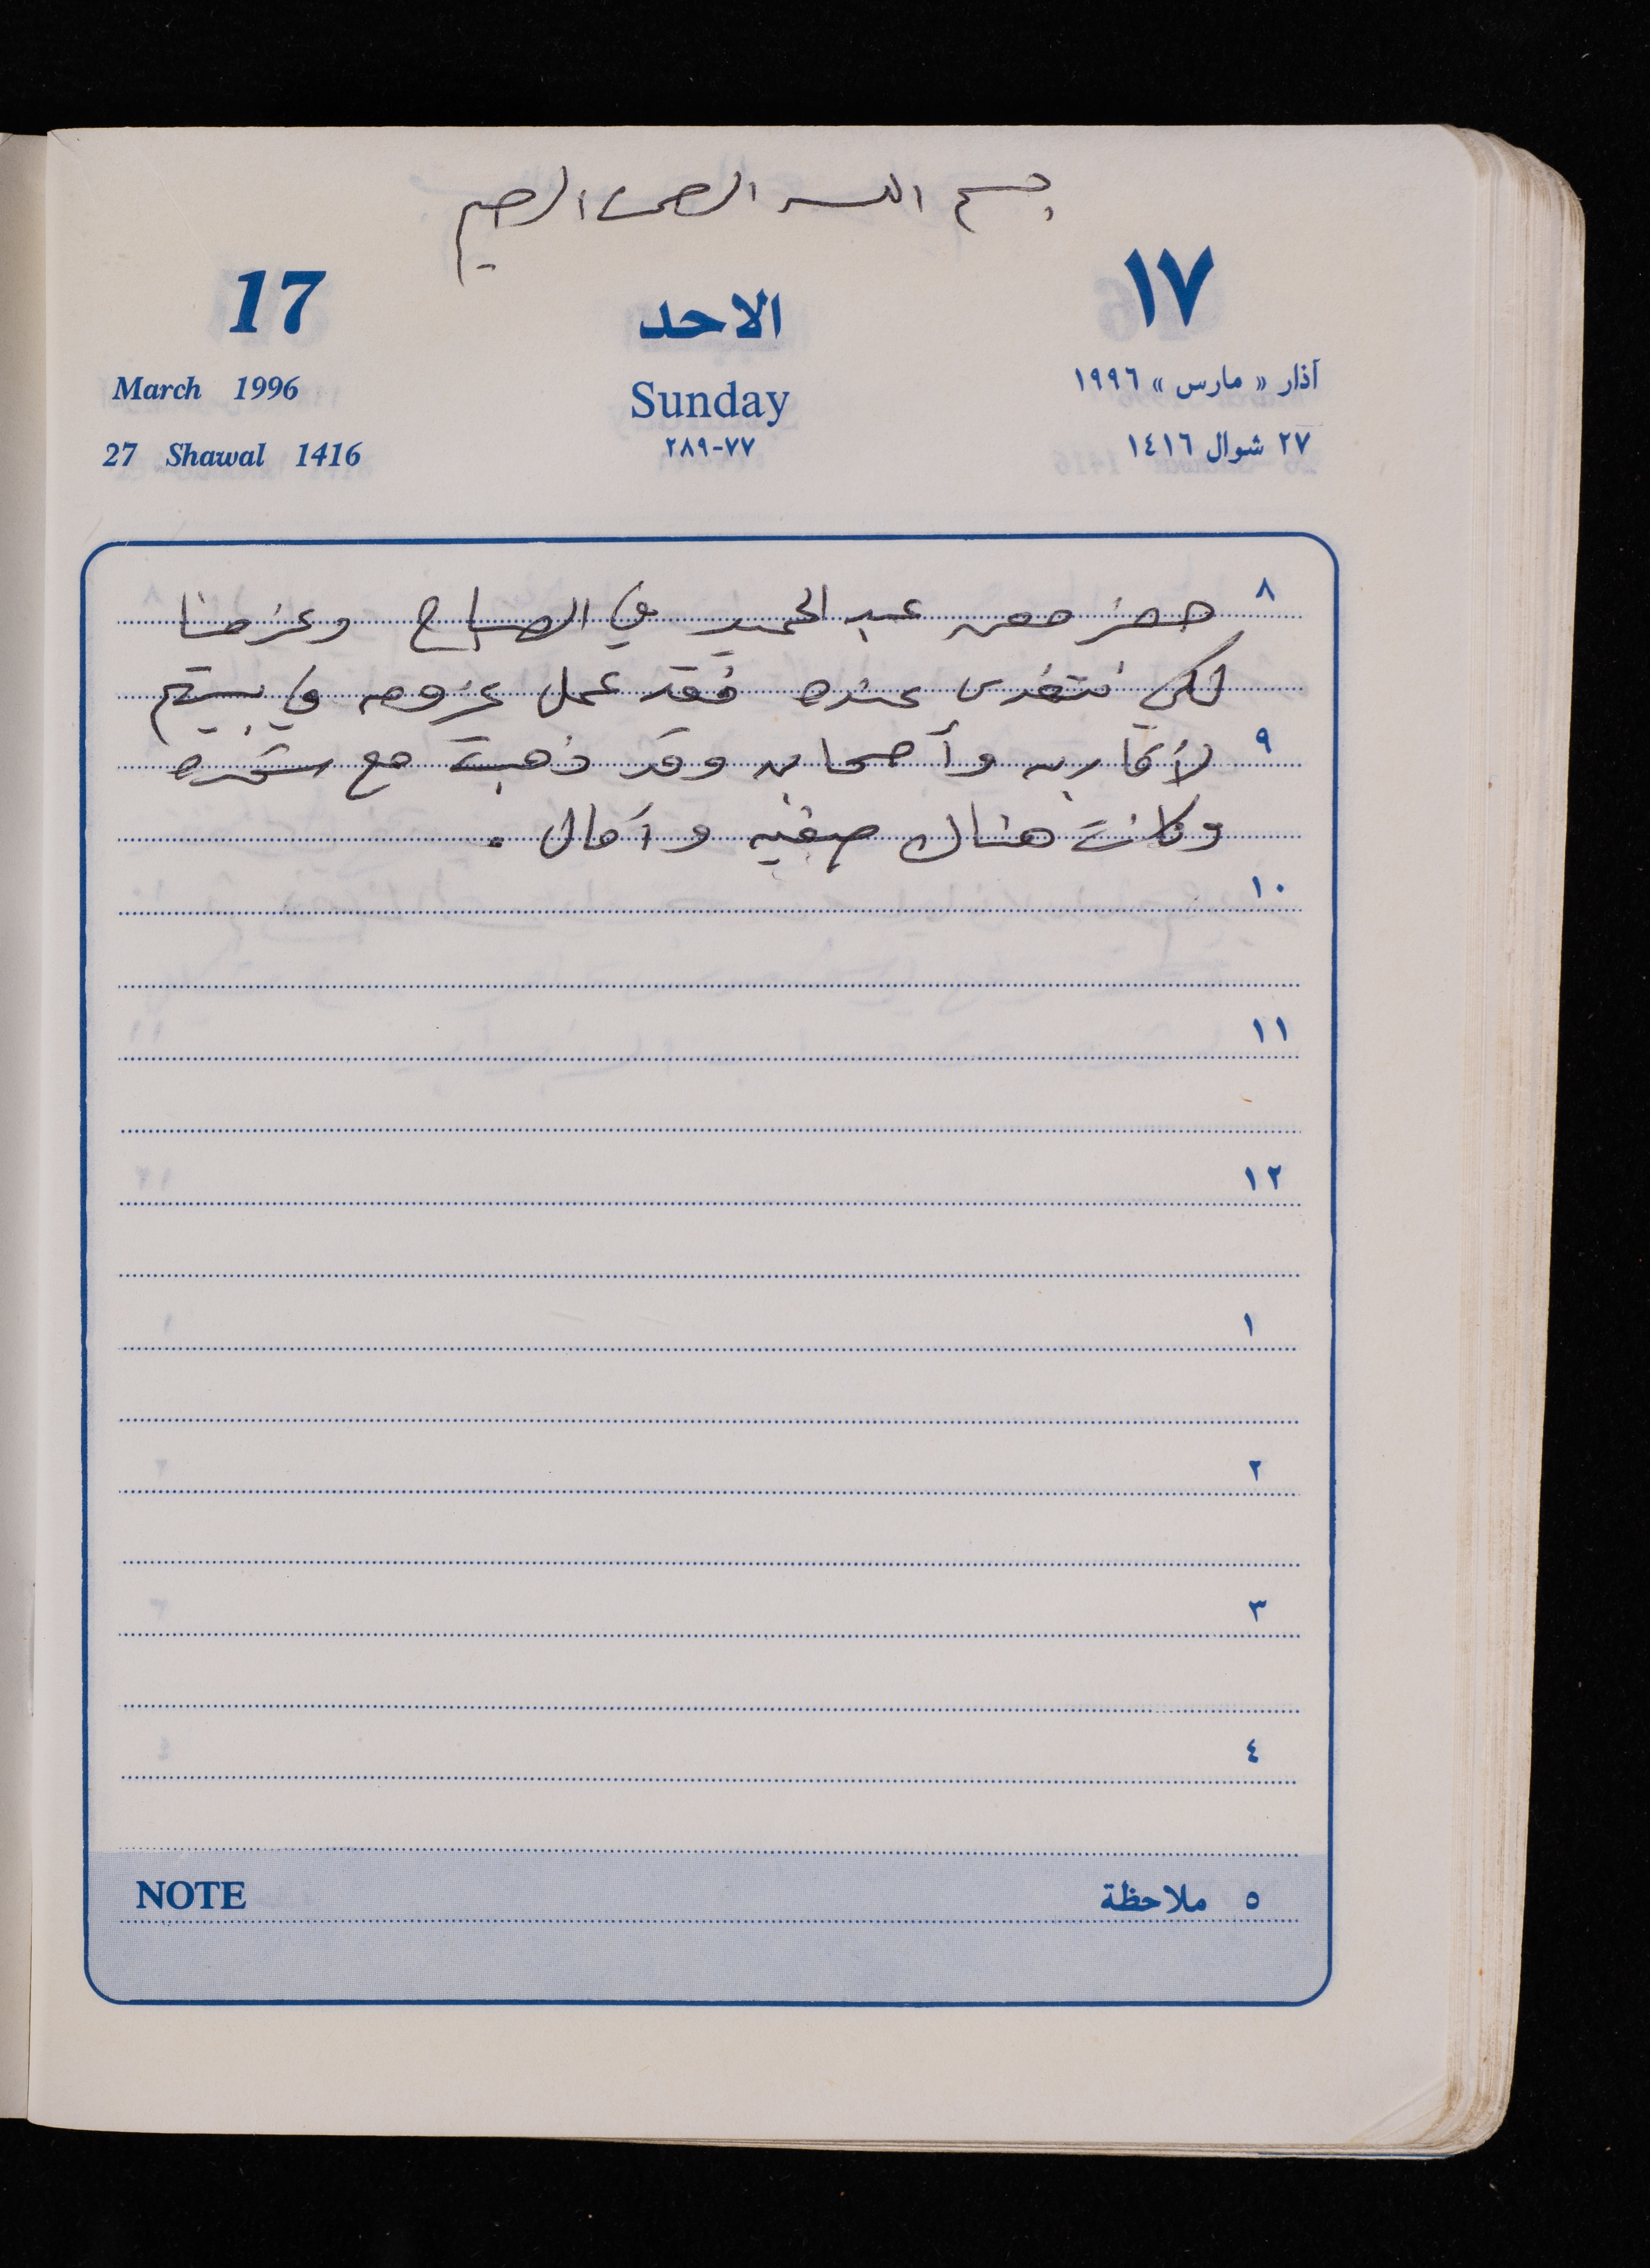 بسم الله الرحمن الرحيم
17
الاحد
١٧
March 1996
Sunday
آذار « مارس » ١٩٩٦
27 Shawal 1416
٧٧-٢٨٩
٢٧ شوال ١٤١٦
٨ حضر معن عبد الحميد في الصباح وعزمنا
لكي نتغدى عنده فقد عمل عزومه في بيتهم
٩ لأقاربه وأصحابه وقد ذهبت مع
وكانت هناك صفيه وآمال .
١٠
١١
١٢
١
٢
٣
٤
NOTE
٥ ملاحظة